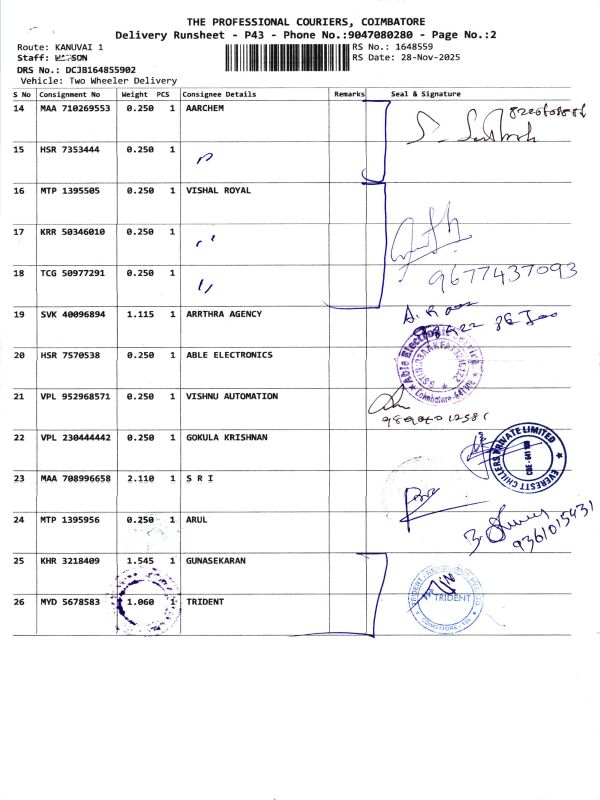 THE PROFESSIONAL COURIERS, COIMBATORE
Delivery Runsheet - P43 - Phone No.:9047080280 - Page No.:2
Route: KANUVAI 1
RS No.: 1648559
Staff:
RS Date: 28-Nov-2025
DRS No.: DCJB164855902
Vehicle: Two Wheeler Delivery
S No Consignment No Weight PCS Consignee Details Remarks Seal & Signature
14 MAA 710269553 0.250 1 AARCHEM
15 HSR 7353444 0.250 1 "
16 MTP 1395505 0.250 1 VISHAL ROYAL
17 KRR 50346010 0.250 1 "
18 TCG 50977291 0.250 1 "
9677437093
19 SVK 40096894 1.115 1 ARRTHRA AGENCY
20 HSR 7570538 0.250 1 ABLE ELECTRONICS
21 VPL 952968571 0.250 1 VISHNU AUTOMATION
22 VPL 230444442 0.250 1 GOKULA KRISHNAN
EVERESTT CHILLERS PRIVATE LIMITED
23 MAA 708996658 2.110 1 S R I
24 MTP 1395956 0.250 1 ARUL
9361015431
25 KHR 3218409 1.545 1 GUNASEKARAN
26 MYD 5678583 1.060 1 TRIDENT
TRIDENT